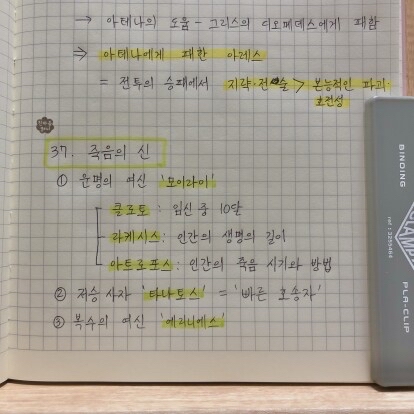 → 아테나의 도움 - 그리스의 디오메데스에게 패함
⇒ 아테나에게 패한 아레스
= 전투의 승패에서 지략·전술 > 본능적인 파괴·
호전성
37. 죽음의 신
① 운명의 여신 '모이라이'
클로토 : 임신 중 10달
라케시스 : 인간의 생명의 길이
아트로포스 : 인간의 죽음 시기와 방법
② 저승 사자 '타나토스' = '빠른 호송자'
③ 복수의 여신 '에리니에스'
BINDING
CLAMP
ref : 3255466
PLA-CLIP